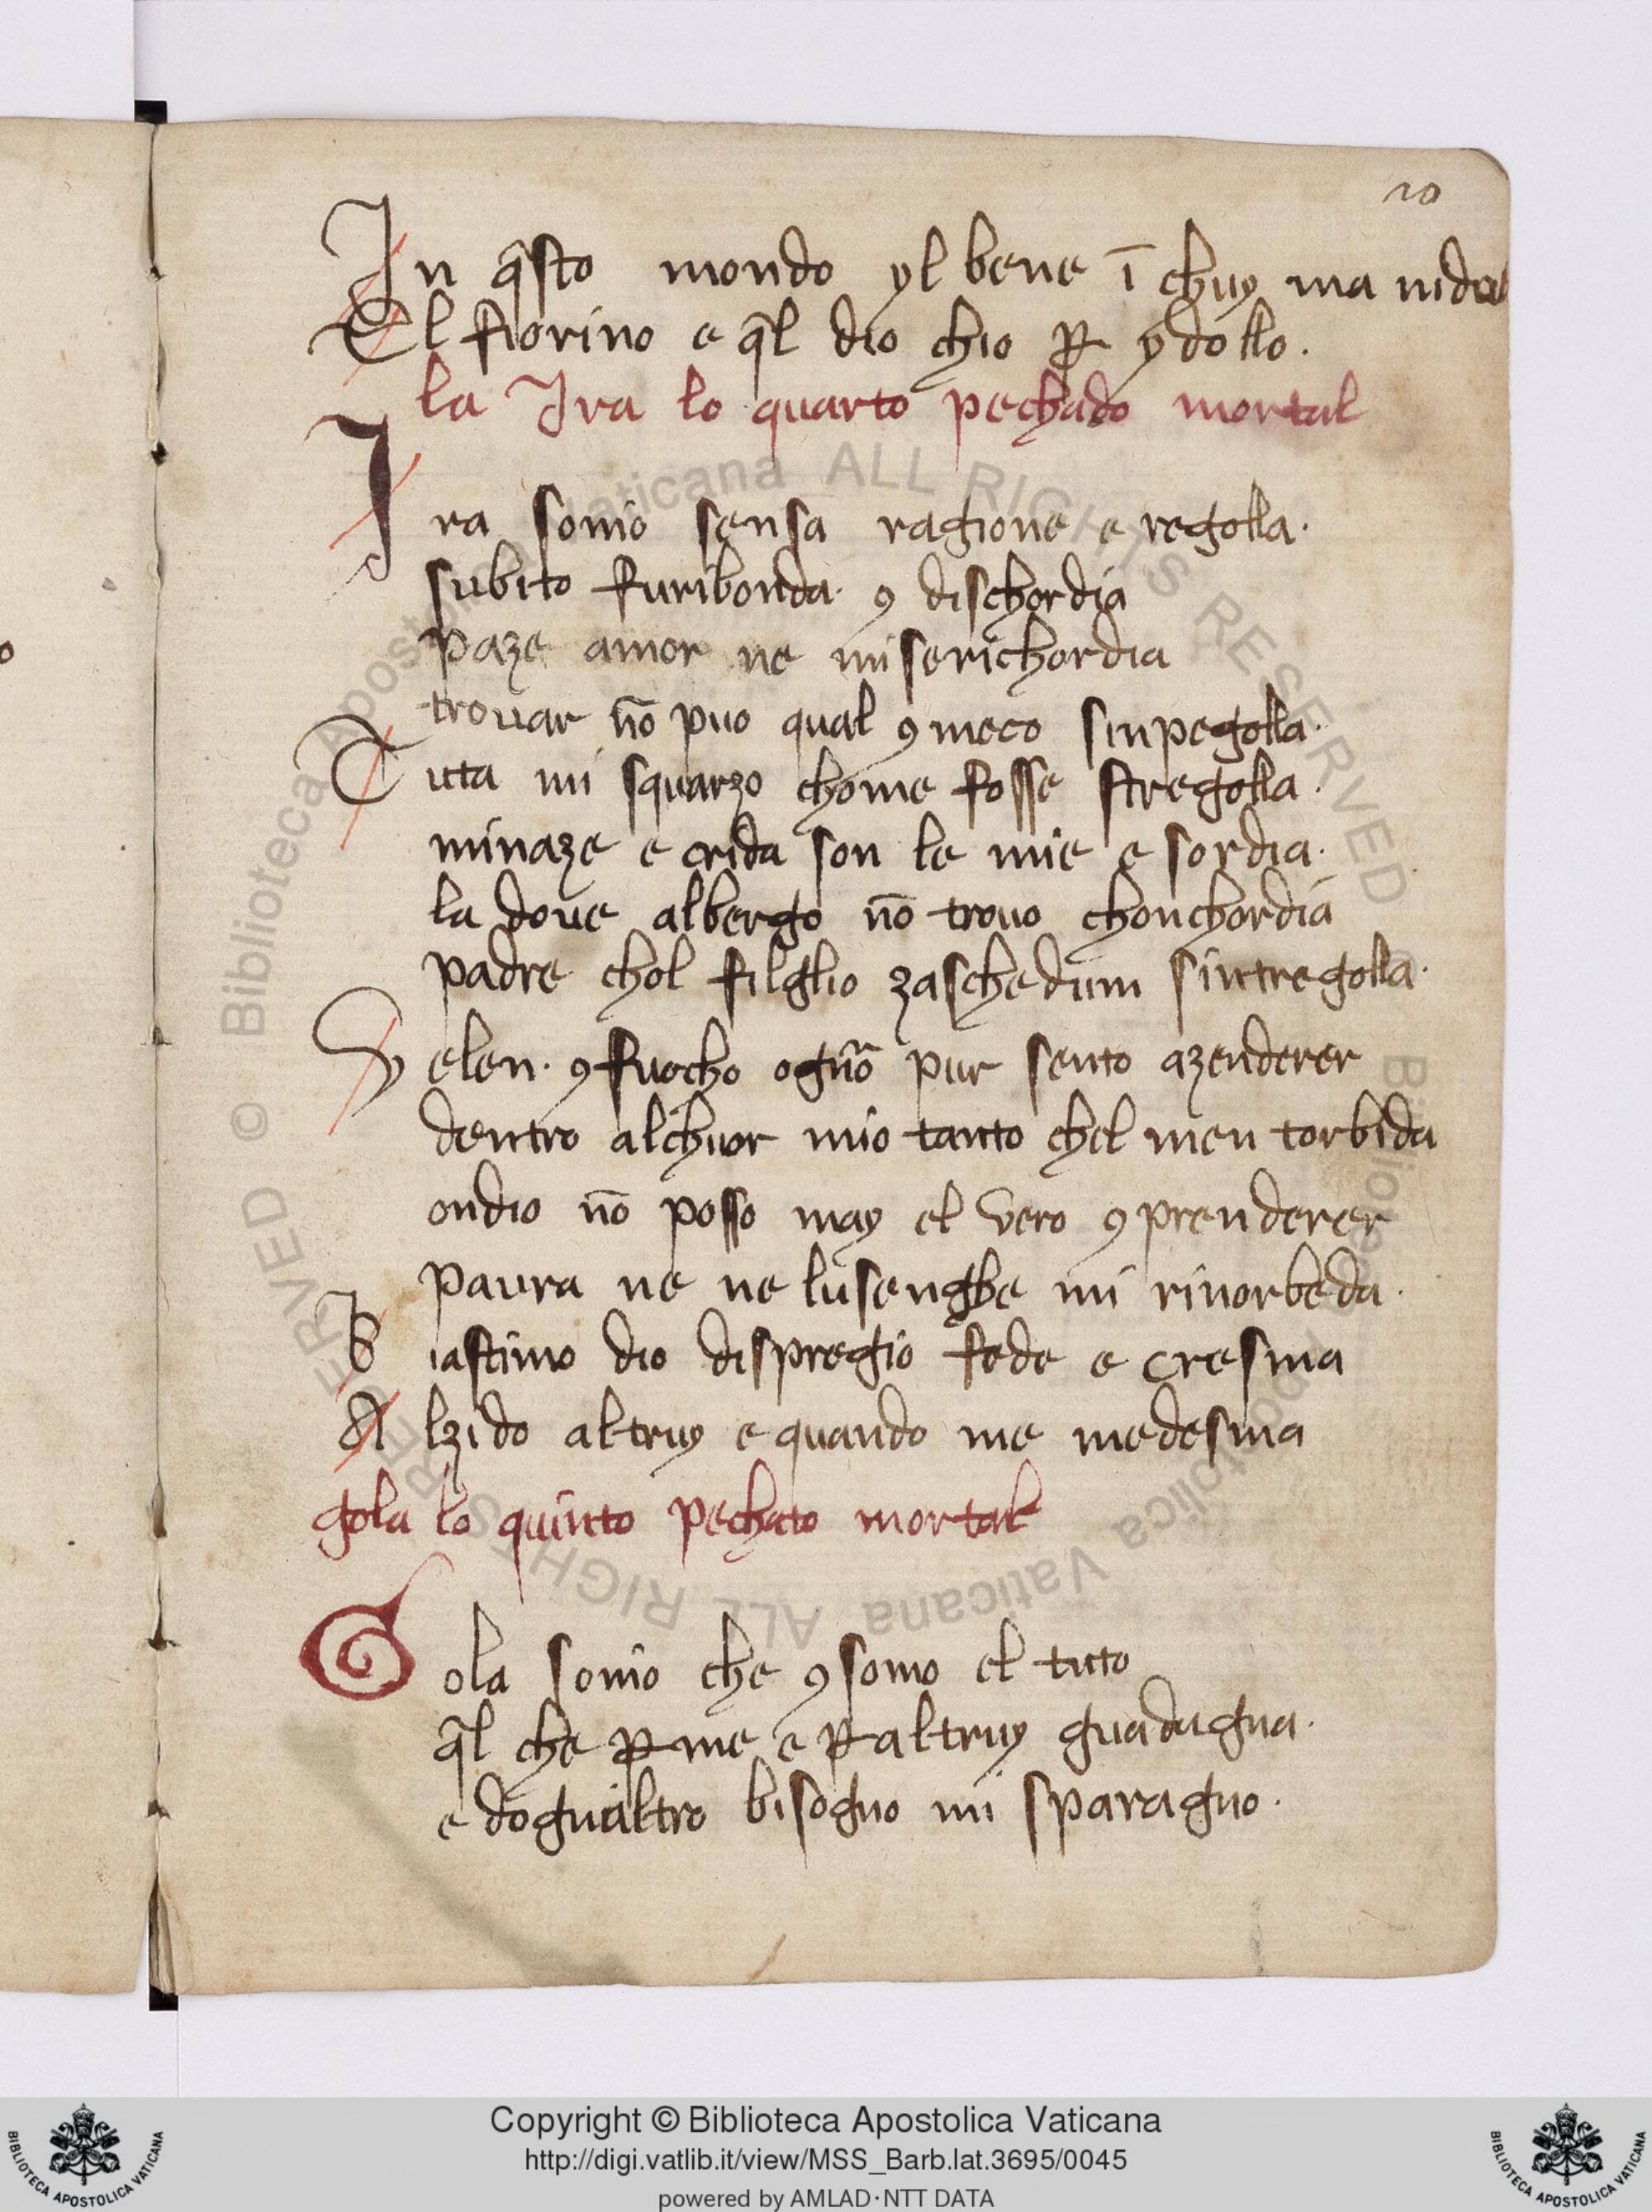 20
In q̄sto mondo yl bene ī chuy ma nida
El fiorino e q̄l dio chio ꝑ ydollo.
la Ira lo quarto pechado mortal
Ira sonio sensa ragione e regolla.
subito furibonda. ꝯ dischordia
paze amor ne miserichordia
trouar nō puo qual ꝯ meco sinpegolla.
Tuta mi squarzo chome fosse stregolla.
minaze e crida son le mie esordia.
la doue albergo nō trouo chonchordia
padre chol filglio zaschedum sintregolla.
Velen. ꝯ fuocho ognō pur sento azenderer
dentro alchuor mio tanto chel men torbida
ondio nō posso may el vero ꝯprenderer
paura ne ne lusenghe mi rinorbeda.
Biastimo dio dispregio fede e cresma
Alzido altruy e quando me medesma
gola lo quinto pechato mortal
Gola sonio che ꝯsomo el tuto
q̄l che ꝑ me e ꝑ altruy guadagna.
e dognialtro bisogno mi sparagno.
© Biblioteca Apostolica Vaticana ALL RIGHTS RESERVED
© Biblioteca Apostolica Vaticana ALL RIGHTS RESERVED
Copyright © Biblioteca Apostolica Vaticana
http://digi.vatlib.it/view/MSS_Barb.lat.3695/0045
powered by AMLAD·NTT DATA
BIBLIOTECA APOSTOLICA VATICANA
BIBLIOTECA APOSTOLICA VATICANA